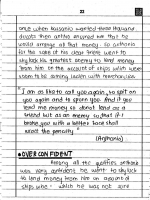 22
once when Bassanio wanted three thousand
ducats then antonio assured him that he
would arrange all that money. So antonio
for the sake of his dear friend went to
shylock his greatest enemy to lend money
from him. on the account of ships which were
soon to be coming laden with merchandise.
"I am as like to call you again, to spit on
you again and to spurn you. And if you
lend me money so do not lend as a
friend but as an enemy, so that if I
broke you with a better face shall
exact the penalty"
(Antonio)
OVER CONFIDENT
Among all the qualities antonio
was very confident he went to shylock
to lend money from him on account of
ships who - which he was not sure